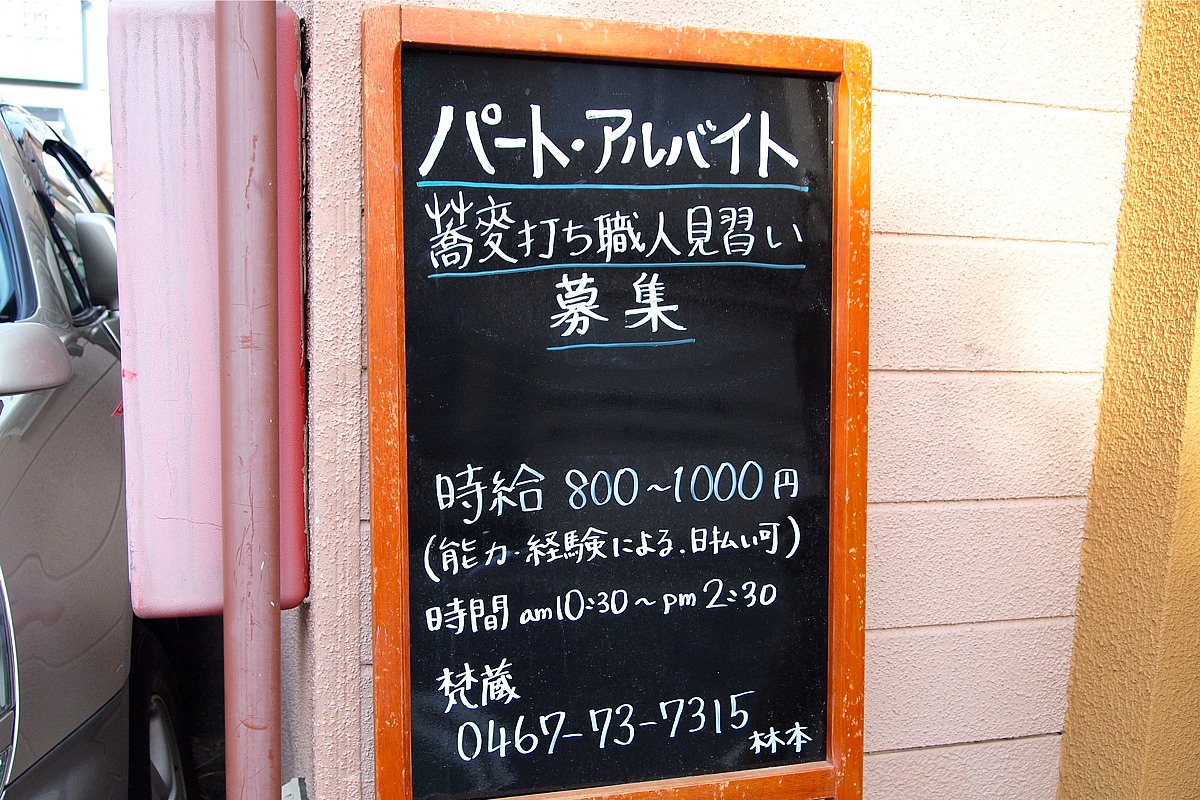 パート・アルバイト
蕎麦打ち職人見習い
募集
時給 800～1000円
(能力・経験による.日払い可)
時間 am10:30～pm2:30
梵蔵
0467-73-7315
林本